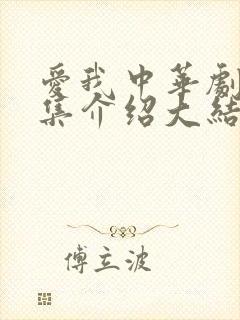 愛我中華劇
集介紹大結
傅立波